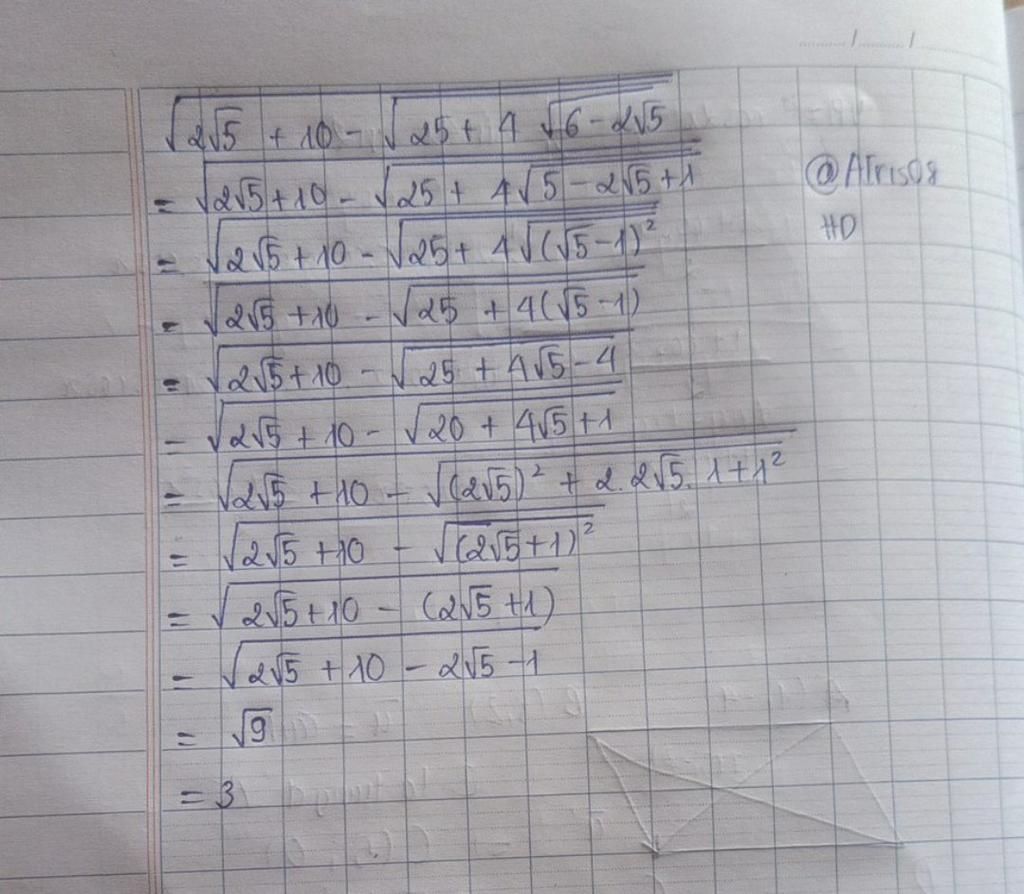 √(2√5 + 10 - √(25 + 4√(6 - 2√5)))
= √(2√5 + 10 - √(25 + 4√(5 - 2√5 + 1)))
= √(2√5 + 10 - √(25 + 4√((√5 - 1)²)))
= √(2√5 + 10 - √(25 + 4(√5 - 1)))
= √(2√5 + 10 - √(25 + 4√5 - 4))
= √(2√5 + 10 - √(20 + 4√5 + 1))
= √(2√5 + 10 - √((2√5)² + 2.2√5.1 + 1²))
= √(2√5 + 10 - √((2√5 + 1)²))
= √(2√5 + 10 - (2√5 + 1))
= √(2√5 + 10 - 2√5 - 1)
= √9
= 3
@Atris08
#D